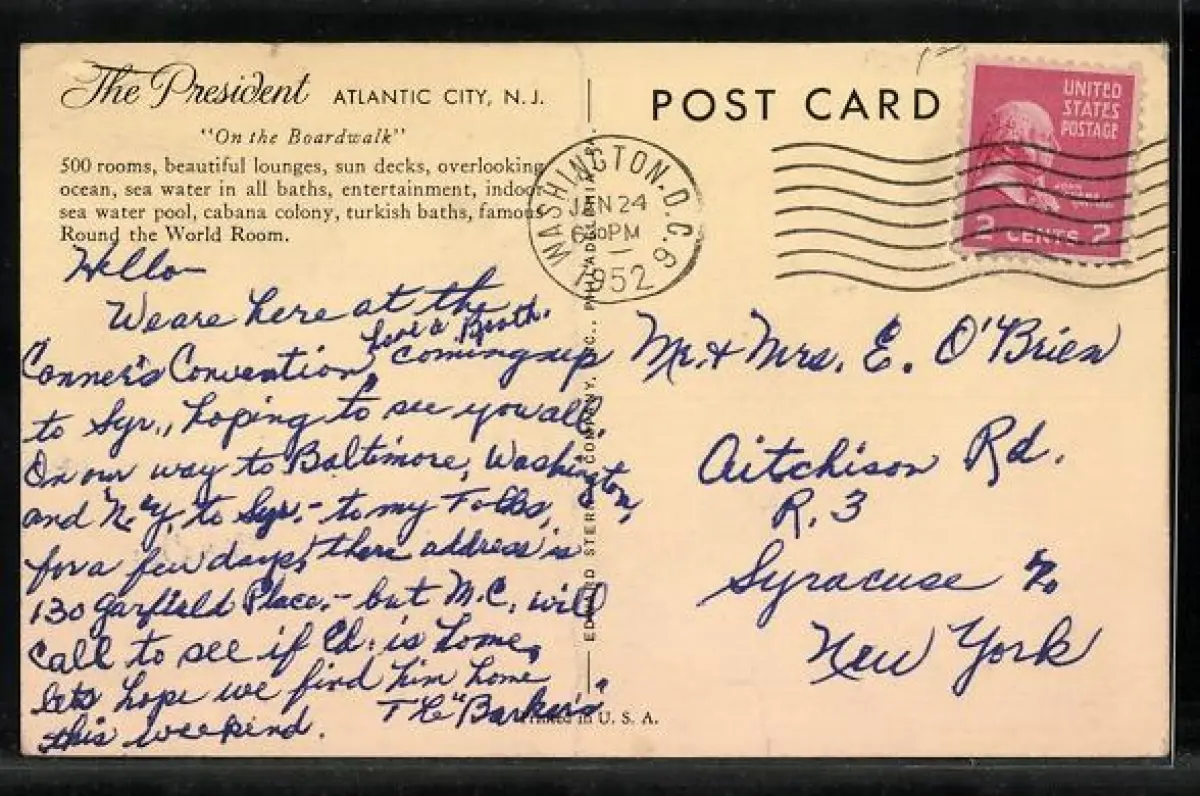 The President ATLANTIC CITY, N.J.
"On the Boardwalk"
500 rooms, beautiful lounges, sun decks, overlooking
ocean, sea water in all baths, entertainment, indoor
sea water pool, cabana colony, turkish baths, famous
Round the World Room.
Hello
We are here at the
have a Booth.
Conner's Convention, coming up
to Syr., hoping to see you all.
On our way to Baltimore, Washington,
and N.Y. to Syr. - to my Folks,
for a few days, there address is
130 Garfield Place. - but M.C. will
call to see if Ed. is home,
lets hope we find him home
this weekend. The "Barker's"
POST CARD
UNITED
STATES
POSTAGE
JOHN
ADAMS
2 CENTS 2
WASHINGTON, D.C. 6
JAN 24
PM
1952
Mr. & Mrs. E. O'Brien
Aitchison Rd.
R. 3
Syracuse
New York
COMPANY, INC., PHILADELPHIA
Printed in U. S. A.